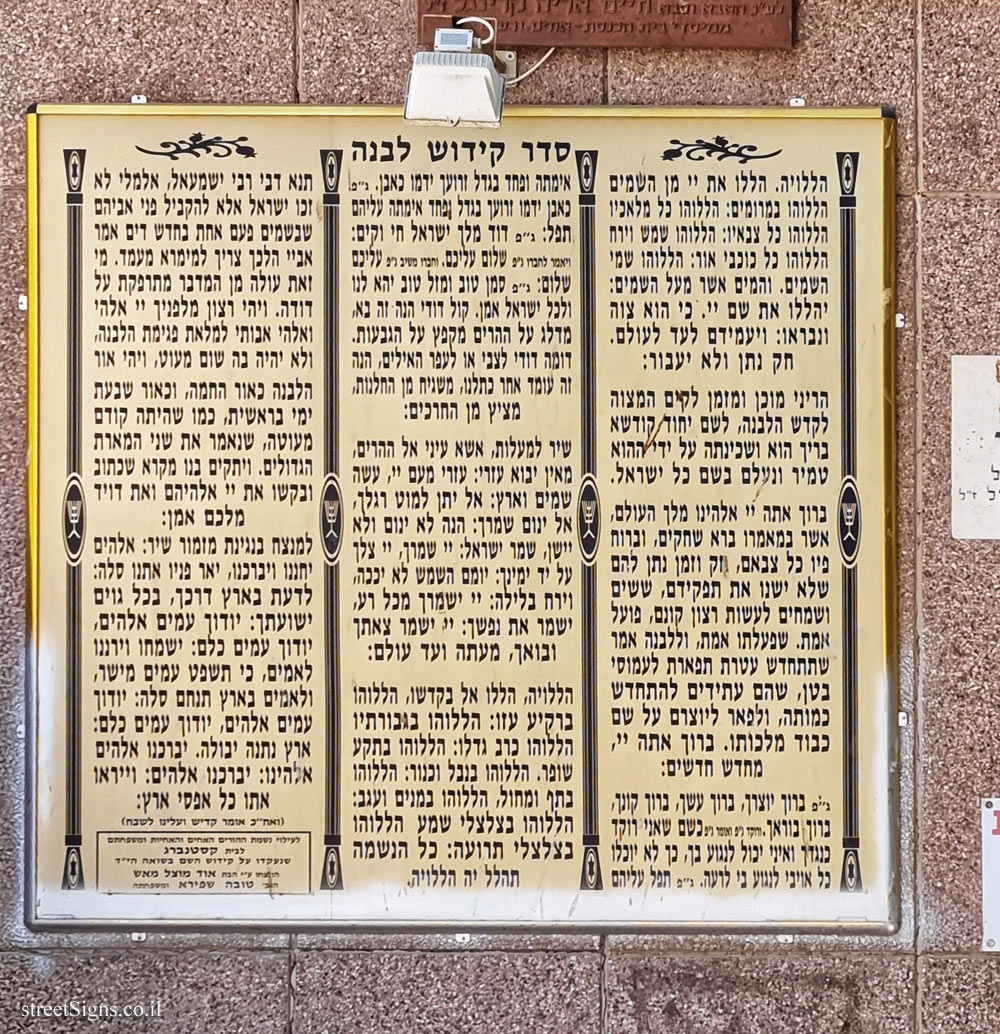 לע"נ האבא וסבא חיים אריה קרינגל ז"ל
ממיסדי בית הכנסת
סדר קידוש לבנה
הללויה. הללו את יי מן השמים
הללוהו במרומים: הללוהו כל מלאכיו
הללוהו כל צבאיו: הללוהו שמש וירח
הללוהו כל כוכבי אור: הללוהו שמי
השמים. והמים אשר מעל השמים:
יהללו את שם יי. כי הוא צוה
ונבראו: ויעמידם לעד לעולם.
חק נתן ולא יעבור:
הריני מוכן ומזמן לקים המצוה
לקדש הלבנה, לשם יחוד קודשא
בריך הוא ושכינתה על ידי ההוא
טמיר ונעלם בשם כל ישראל.
ברוך אתה יי אלהינו מלך העולם,
אשר במאמרו ברא שחקים, וברוח
פיו כל צבאם, חק וזמן נתן להם
שלא ישנו את תפקידם, ששים
ושמחים לעשות רצון קונם, פועל
אמת. שפעלתו אמת, וללבנה אמר
שתתחדש עטרת תפארת לעמוסי
בטן, שהם עתידים להתחדש
כמותה, ולפאר ליוצרם על שם
כבוד מלכותו. ברוך אתה יי,
מחדש חדשים:
ג"פ ברוך יוצרך, ברוך עשך, ברוך קונך,
ברוך בוראך. ורוקד ג"פ ואומר ג"פ כשם שאני רוקד
כנגדך ואיני יכול לנגוע בך, כך לא יוכלו
כל אויבי לנגוע בי לרעה. ג"פ תפל עליהם
אימתה ופחד בגדל זרועך ידמו כאבן. ג"פ
כאבן ידמו זרועך בגדל ופחד אימתה עליהם
תפל: ג"פ דוד מלך ישראל חי וקים:
ויאמר לחברו ג"פ שלום עליכם. וחברו משיב ג"פ עליכם
שלום: ג"פ סמן טוב ומזל טוב יהא לנו
ולכל ישראל אמן. קול דודי הנה זה בא,
מדלג על ההרים מקפץ על הגבעות.
דומה דודי לצבי או לעפר האילים, הנה
זה עומד אחר כתלנו, משגיח מן החלנות,
מציץ מן החרכים:
שיר למעלות, אשא עיני אל ההרים,
מאין יבוא עזרי: עזרי מעם יי, עשה
שמים וארץ: אל יתן למוט רגלך,
אל ינום שמרך: הנה לא ינום ולא
יישן, שמר ישראל: יי שמרך, יי צלך
על יד ימינך: יומם השמש לא יככה,
וירח בלילה: יי ישמרך מכל רע,
ישמר את נפשך: יי ישמר צאתך
ובואך, מעתה ועד עולם:
הללויה, הללו אל בקדשו, הללוהו
ברקיע עזו: הללוהו בגבורתיו
הללוהו כרב גדלו: הללוהו בתקע
שופר. הללוהו בנבל וכנור: הללוהו
בתף ומחול, הללוהו במנים ועגב:
הללוהו בצלצלי שמע הללוהו
בצלצלי תרועה: כל הנשמה
תהלל יה הללויה.
תנא דבי רבי ישמעאל, אלמלי לא
זכו ישראל אלא להקביל פני אביהם
שבשמים פעם אחת בחדש דים אמר
אביי הלכך צריך למימרא מעמד. מי
זאת עולה מן המדבר מתרפקת על
דודה. ויהי רצון מלפניך יי אלהי
ואלהי אבותי למלאת פגימת הלבנה,
ולא יהיה בה שום מעוט, ויהי אור
הלבנה כאור החמה, וכאור שבעת
ימי בראשית, כמו שהיתה קודם
מעוטה, שנאמר את שני המארת
הגדולים. ויתקים בנו מקרא שכתוב
ובקשו את יי אלהיהם ואת דויד
מלכם אמן:
למנצח בנגינת מזמור שיר: אלהים
יחננו ויברכנו, יאר פניו אתנו סלה:
לדעת בארץ דרכך, בכל גוים
ישועתך: יודוך עמים אלהים,
יודוך עמים כלם: ישמחו וירננו
לאמים, כי תשפט עמים מישר,
ולאמים בארץ תנחם סלה: יודוך
עמים אלהים, יודוך עמים כלם:
ארץ נתנה יבולה. יברכנו אלהים
אלהינו: יברכנו אלהים: וייראו
אתו כל אפסי ארץ:
(ואח"כ אומר קדיש ועלינו לשבח)
לעילוי נשמת ההורים האחים והאחיות ומשפחתם
לבית קסטנברג
שנעקדו על קידוש השם בשואה הי"ד
הונצחו ע"י הבת אוד מוצל מאש
הגב' טובה שפירא ומשפחתה
ל ז"ל
streetSigns.co.il